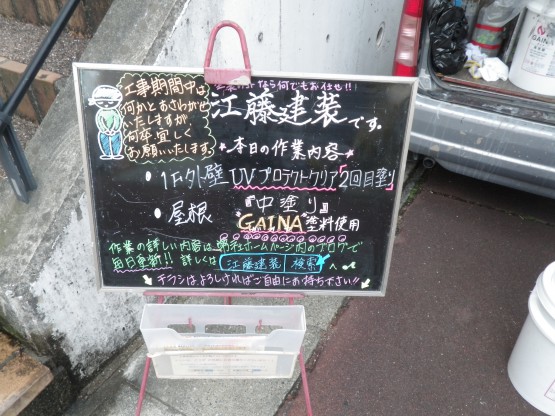 工事期間中は
何かとおさわがせ
いたしますが
何卒宜しく
お願いいたします。
なら何でもお任せ!!
江藤建装です。
*本日の作業内容*
・1F外壁 UVプロテクトクリア2回目塗り
・屋根 『中塗り』
"GAINA"塗料使用
作業の詳しい内容は、弊社ホームページ内のブログで
毎日更新!! 詳しくは 江藤建装 検索 へ
チラシはよろしければご自由にお持ち下さい!!
GAINA